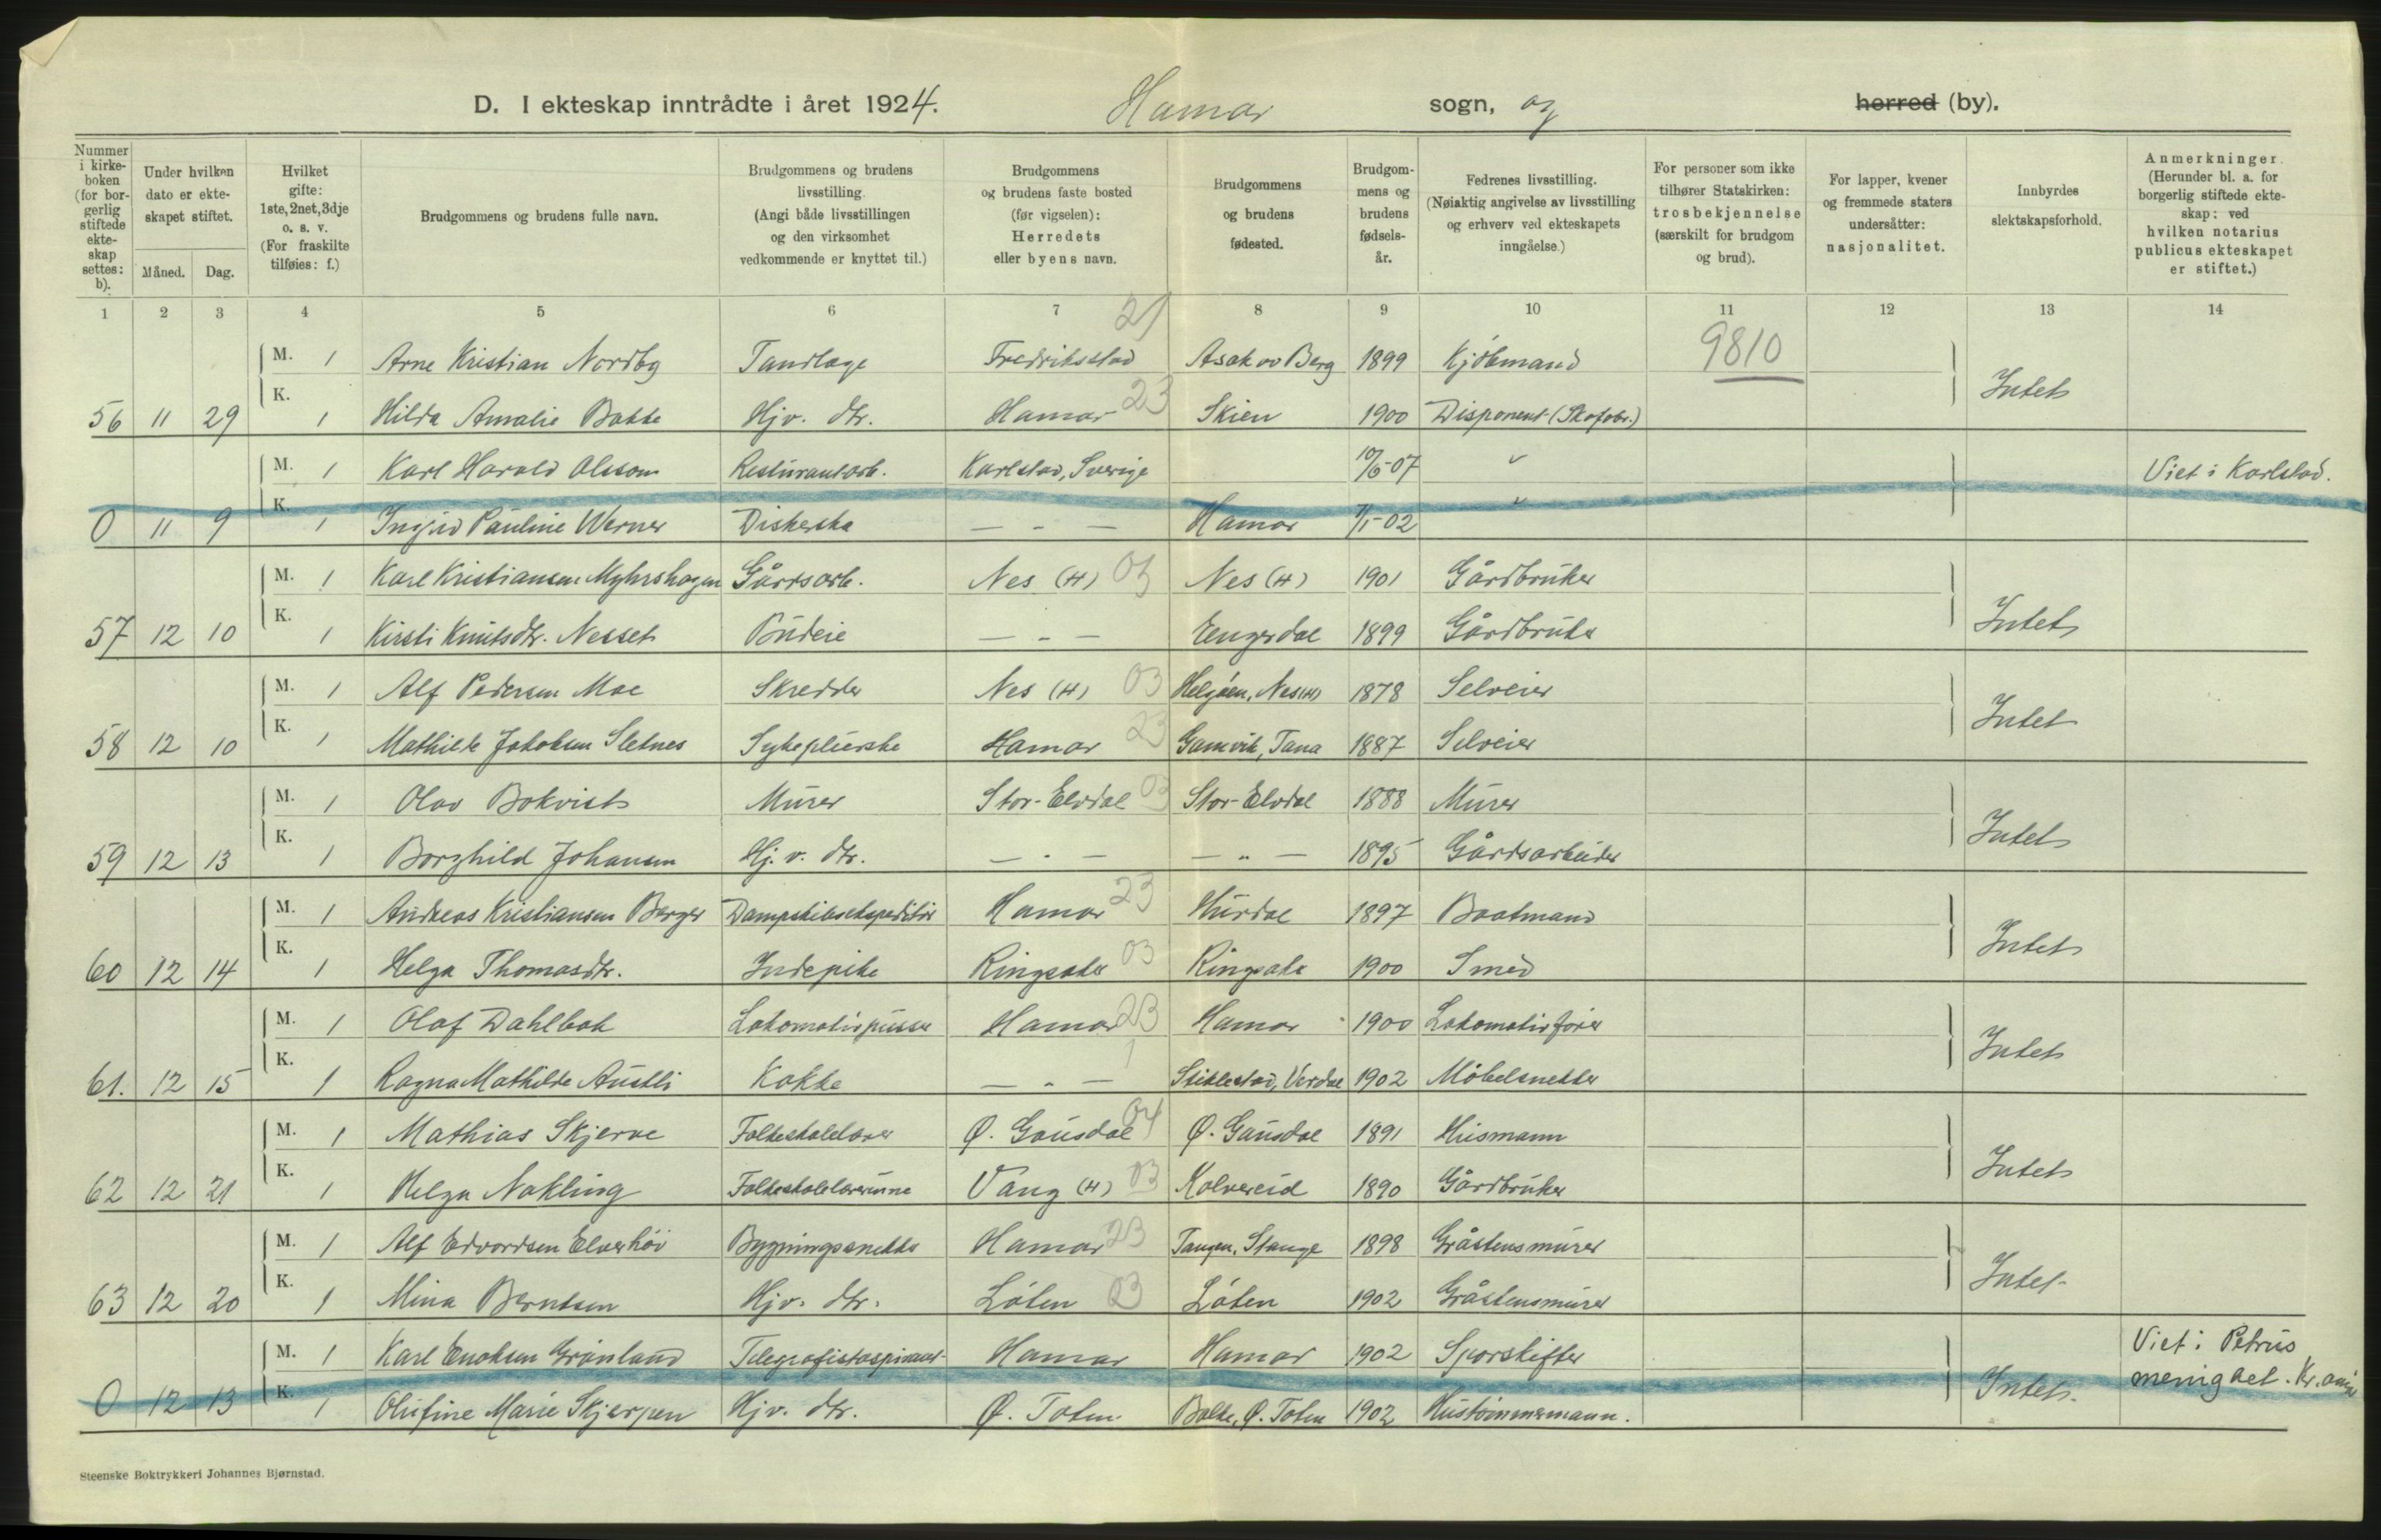 D. I ekteskap inntrådte i året 1924. Hamar sogn, og herred (by).
Nummer i kirkeboken (for borgerlig stiftede ekteskap settes: b).
Under hvilken dato er ekteskapet stiftet.
Måned. Dag.
Hvilket gifte: 1ste, 2net, 3dje o. s. v. (For fraskilte tilføies: f.)
Brudgommens og brudens fulle navn.
Brudgommens og brudens livsstilling. (Angi både livsstillingen og den virksomhet vedkommende er knyttet til.)
Brudgommens og brudens faste bosted (før vigselen): Herredets eller byens navn.
Brudgommens og brudens fødested.
Brudgommens og brudens fødselsår.
Fedrenes livsstilling. (Nøiaktig angivelse av livsstilling og erhverv ved ekteskapets inngåelse.)
For personer som ikke tilhører Statskirken: trosbekjennelse (særskilt for brudgom og brud).
For lapper, kvener og fremmede staters undersåtter: nasjonalitet.
Innbyrdes slektskapsforhold.
Anmerkninger. (Herunder bl. a. for borgerlig stiftede ekteskap: ved hvilken notarius publicus ekteskapet er stiftet.)
1 2 3 4 5 6 7 8 9 10 11 12 13 14
M. 1 Arne Kristian Nordby Tandlæge Fredriksstad 21 Asak Berg 1899 Kjöbmand 9810
56 11 29 K. 1 Hilda Amalie Bakke Hjv. dtr. Hamar 23 Skien 1900 Disponent (Skofabr.) Intet
M. 1 Karl Harald Olsson Resturantarb. Karlstad, Sverige 10/6-07 Viet i Karlstad.
0 11 9 K. 1 Ingrid Pauline Werner Diskerska — " — Hamar 7/1-02
M. 1 Karl Kristiansen Myhrshagen Gårdsarb. Nes (H) 03 Nes (H) 1901 Gårdbruker
57 12 10 K. 1 Kirsti Knutsdtr. Nesset Budeie — " — Engerdal 1899 Gårdbruker Intet
M. 1 Alf Pedersen Moe Skredder Nes (H) 03 Helgöen, Nes (H) 1878 Selveier
58 12 10 K. 1 Mathilde Jakobsen Sletnes Sykepleierske Hamar 23 Gamvik, Tana 1887 Selveier Intet
M. 1 Olav Bokvist Murer Stor-Elvdal 03 Stor-Elvdal 1888 Murer
59 12 13 K. 1 Borghild Johansen Hj. v. dtr. — " — — " — 1895 Gårdsarbeider Intet
M. 1 Andreas Kristiansen Berger Dampskibsekspeditör Hamar 23 Hurdal 1897 Baatmand
60 12 14 K. 1 Helga Thomasdtr. Indepike Ringsaker 03 Ringsaker 1900 Smed Intet
M. 1 Olaf Dahlbak Lokomotivpusser Hamar 23 Hamar 1900 Lokomotivförer
61. 12 15 K. 1 Ragna Mathilde Austli Kokke — " — Stiklestad, Verdal 1902 Möbelsnekker Intet
M. 1 Mathias Skjerve Folkeskolelærer Ø. Gausdal 04 Ø. Gausdal 1891 Husmann
62 12 21 K. 1 Helga Nakling Folkeskolelærerinne Vang (H) 03 Kolvereid 1890 Gårdbruker Intet
M. 1 Alf Edvardsen Elverhöi Bygningssnekker Hamar 23 Tangen, Stange 1898 Gråstensmurer
63 12 20 K. 1 Mina Berntsen Hjv. dtr. Löten 03 Löten 1902 Gråstensmurer Intet
M. 1 Karl Enoksen Grönland Telegrafistaspirant Hamar Hamar 1902 Sporskifter Viet i Petrus
0 12 13 K. 1 Olufine Marie Skjerpen Hjv. dtr. Ø. Toten Balke, Ø. Toten 1902 Hustömmermann. Intet. menighet. Kr.ania
Steenske Boktrykkeri Johannes Bjørnstad.